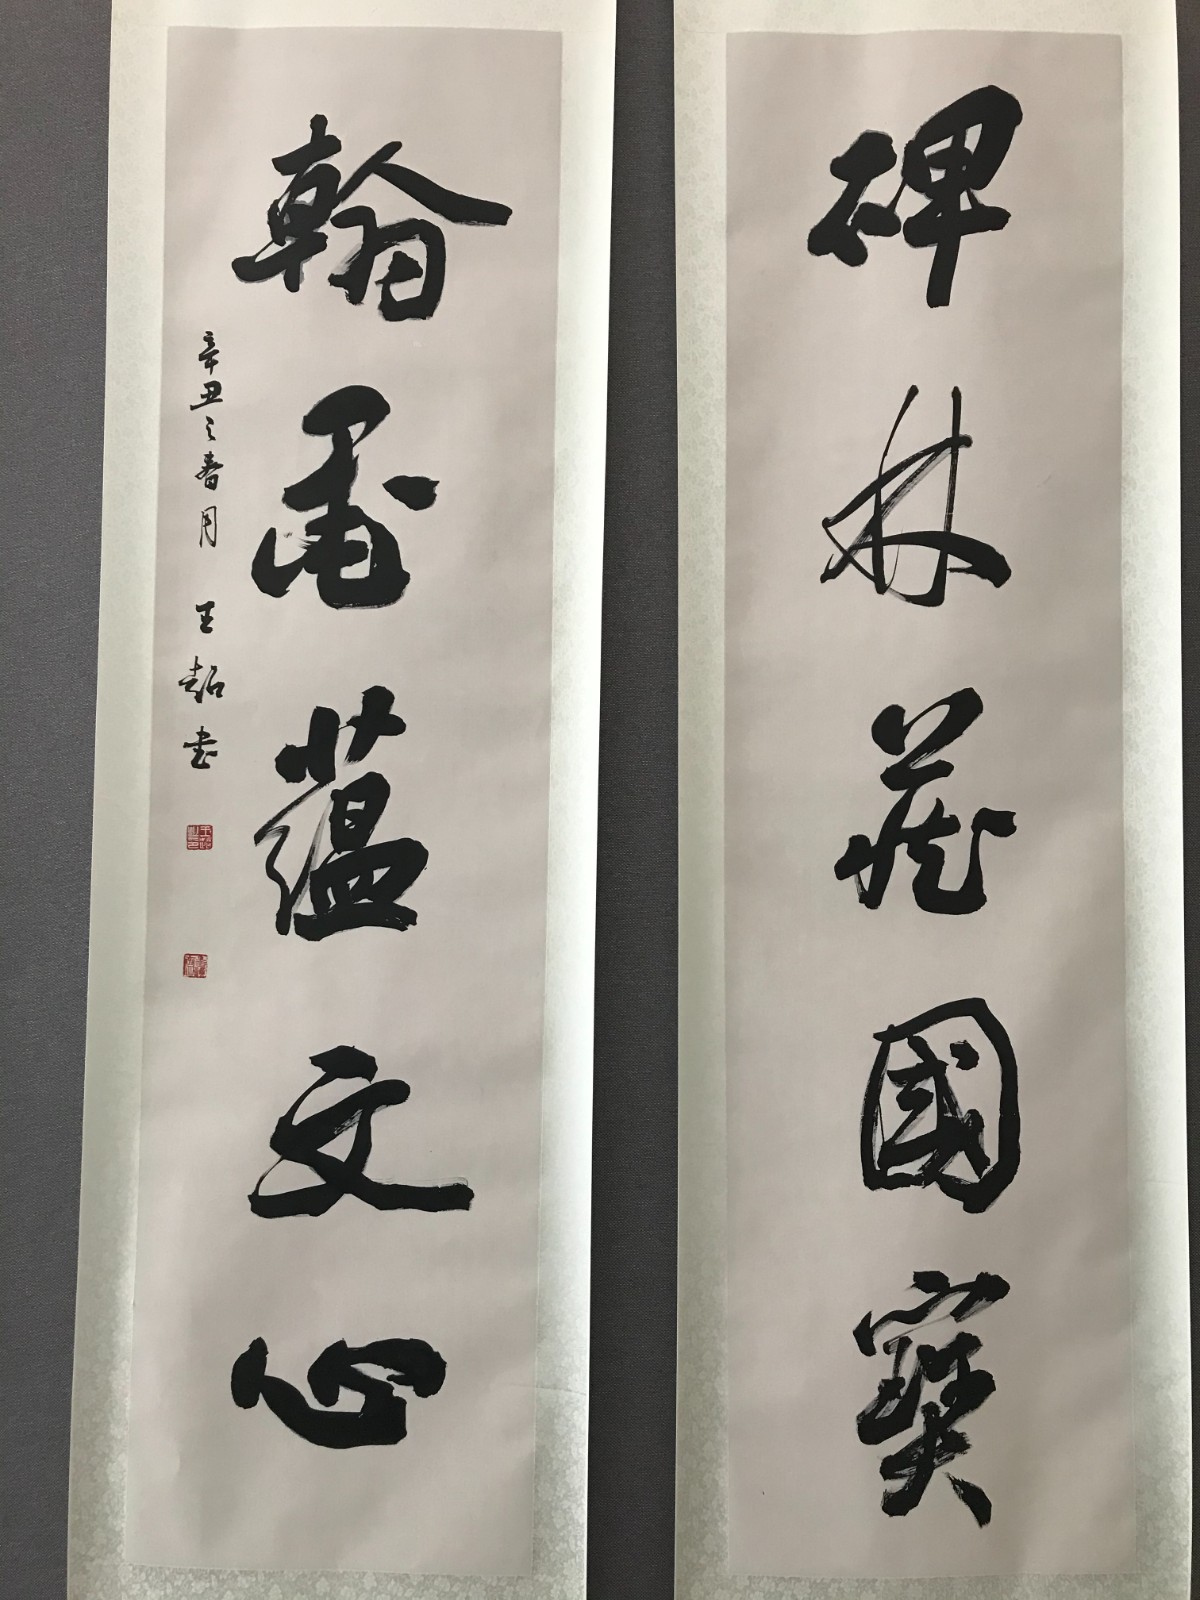 碑林藏國寶
翰墨蘊文心
辛丑之春月 王超書